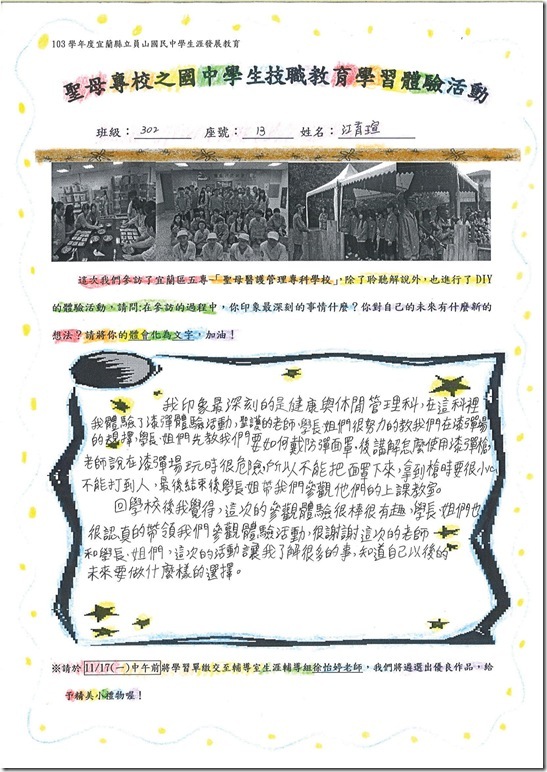 103學年度宜蘭縣立員山國民中學生涯發展教育
聖母專校之國中學生技職教育學習體驗活動
班級：302 座號：13 姓名：江育瑄
這次我們參訪了宜蘭區五專-「聖母醫護管理專科學校」，除了聆聽解說外，也進行了 DIY
的體驗活動，請問:在參訪的過程中，你印象最深刻的事情什麼？你對自己的未來有什麼新的
想法？請將你的體會化為文字，加油！
我印象最深刻的是健康與休閒管理科，在這科裡
我體驗了漆彈體驗活動，聖護的老師、學長姐們很努力的教我們在漆彈場
的選擇，學長、姐們先教我們要如何戴防彈面罩，後講解怎麼使用漆彈槍，
老師說在漆彈場玩時很危險所以不能把面罩下來，拿到槍時要很小心
不能打到人，最後結束後學長姐帶我們參觀他們的上課教室。
回學校後我覺得，這次的參觀體驗很棒很有趣，學長、姐們也
很認真的帶領我們參觀體驗活動，很謝謝這次的老師
和學長、姐們，這次的活動讓我了解很多的事，知道自己以後的
未來要做什麼樣的選擇。
※請於 11/17(一)中午前將學習單繳交至輔導室生涯輔導組徐怡婷老師，我們將遴選出優良作品，給
予精美小禮物喔！